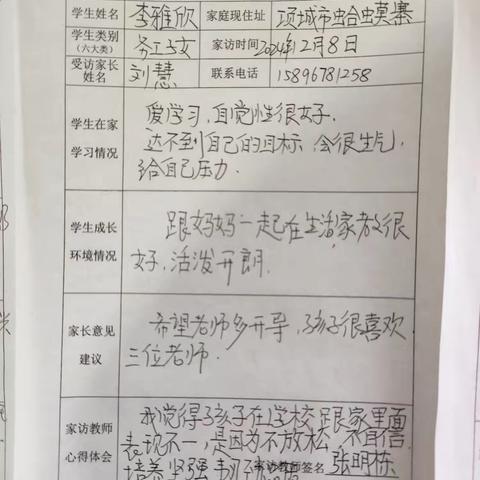 学生姓名 李雅欣 家庭现住址 项城市蛤蟆寨
学生类别
(六大类) 务工子女 家访时间 2024年12月8日
受访家长
姓名 刘慧 联系电话 15896781258
学生在家
学习情况
爱学习,自觉性很好.
达不到自己的目标,会很生气,
给自己压力.
学生成长
环境情况
跟妈妈一起在生活,家教很
好,活泼开朗.
家长意见
建议
希望老师多开导,孩子很喜欢
三位老师.
家访教师
心得体会
我觉得孩子在学校跟家里面
表现不一,是因为不放松,不自信
培养坚强
家访教师签名 张明栋